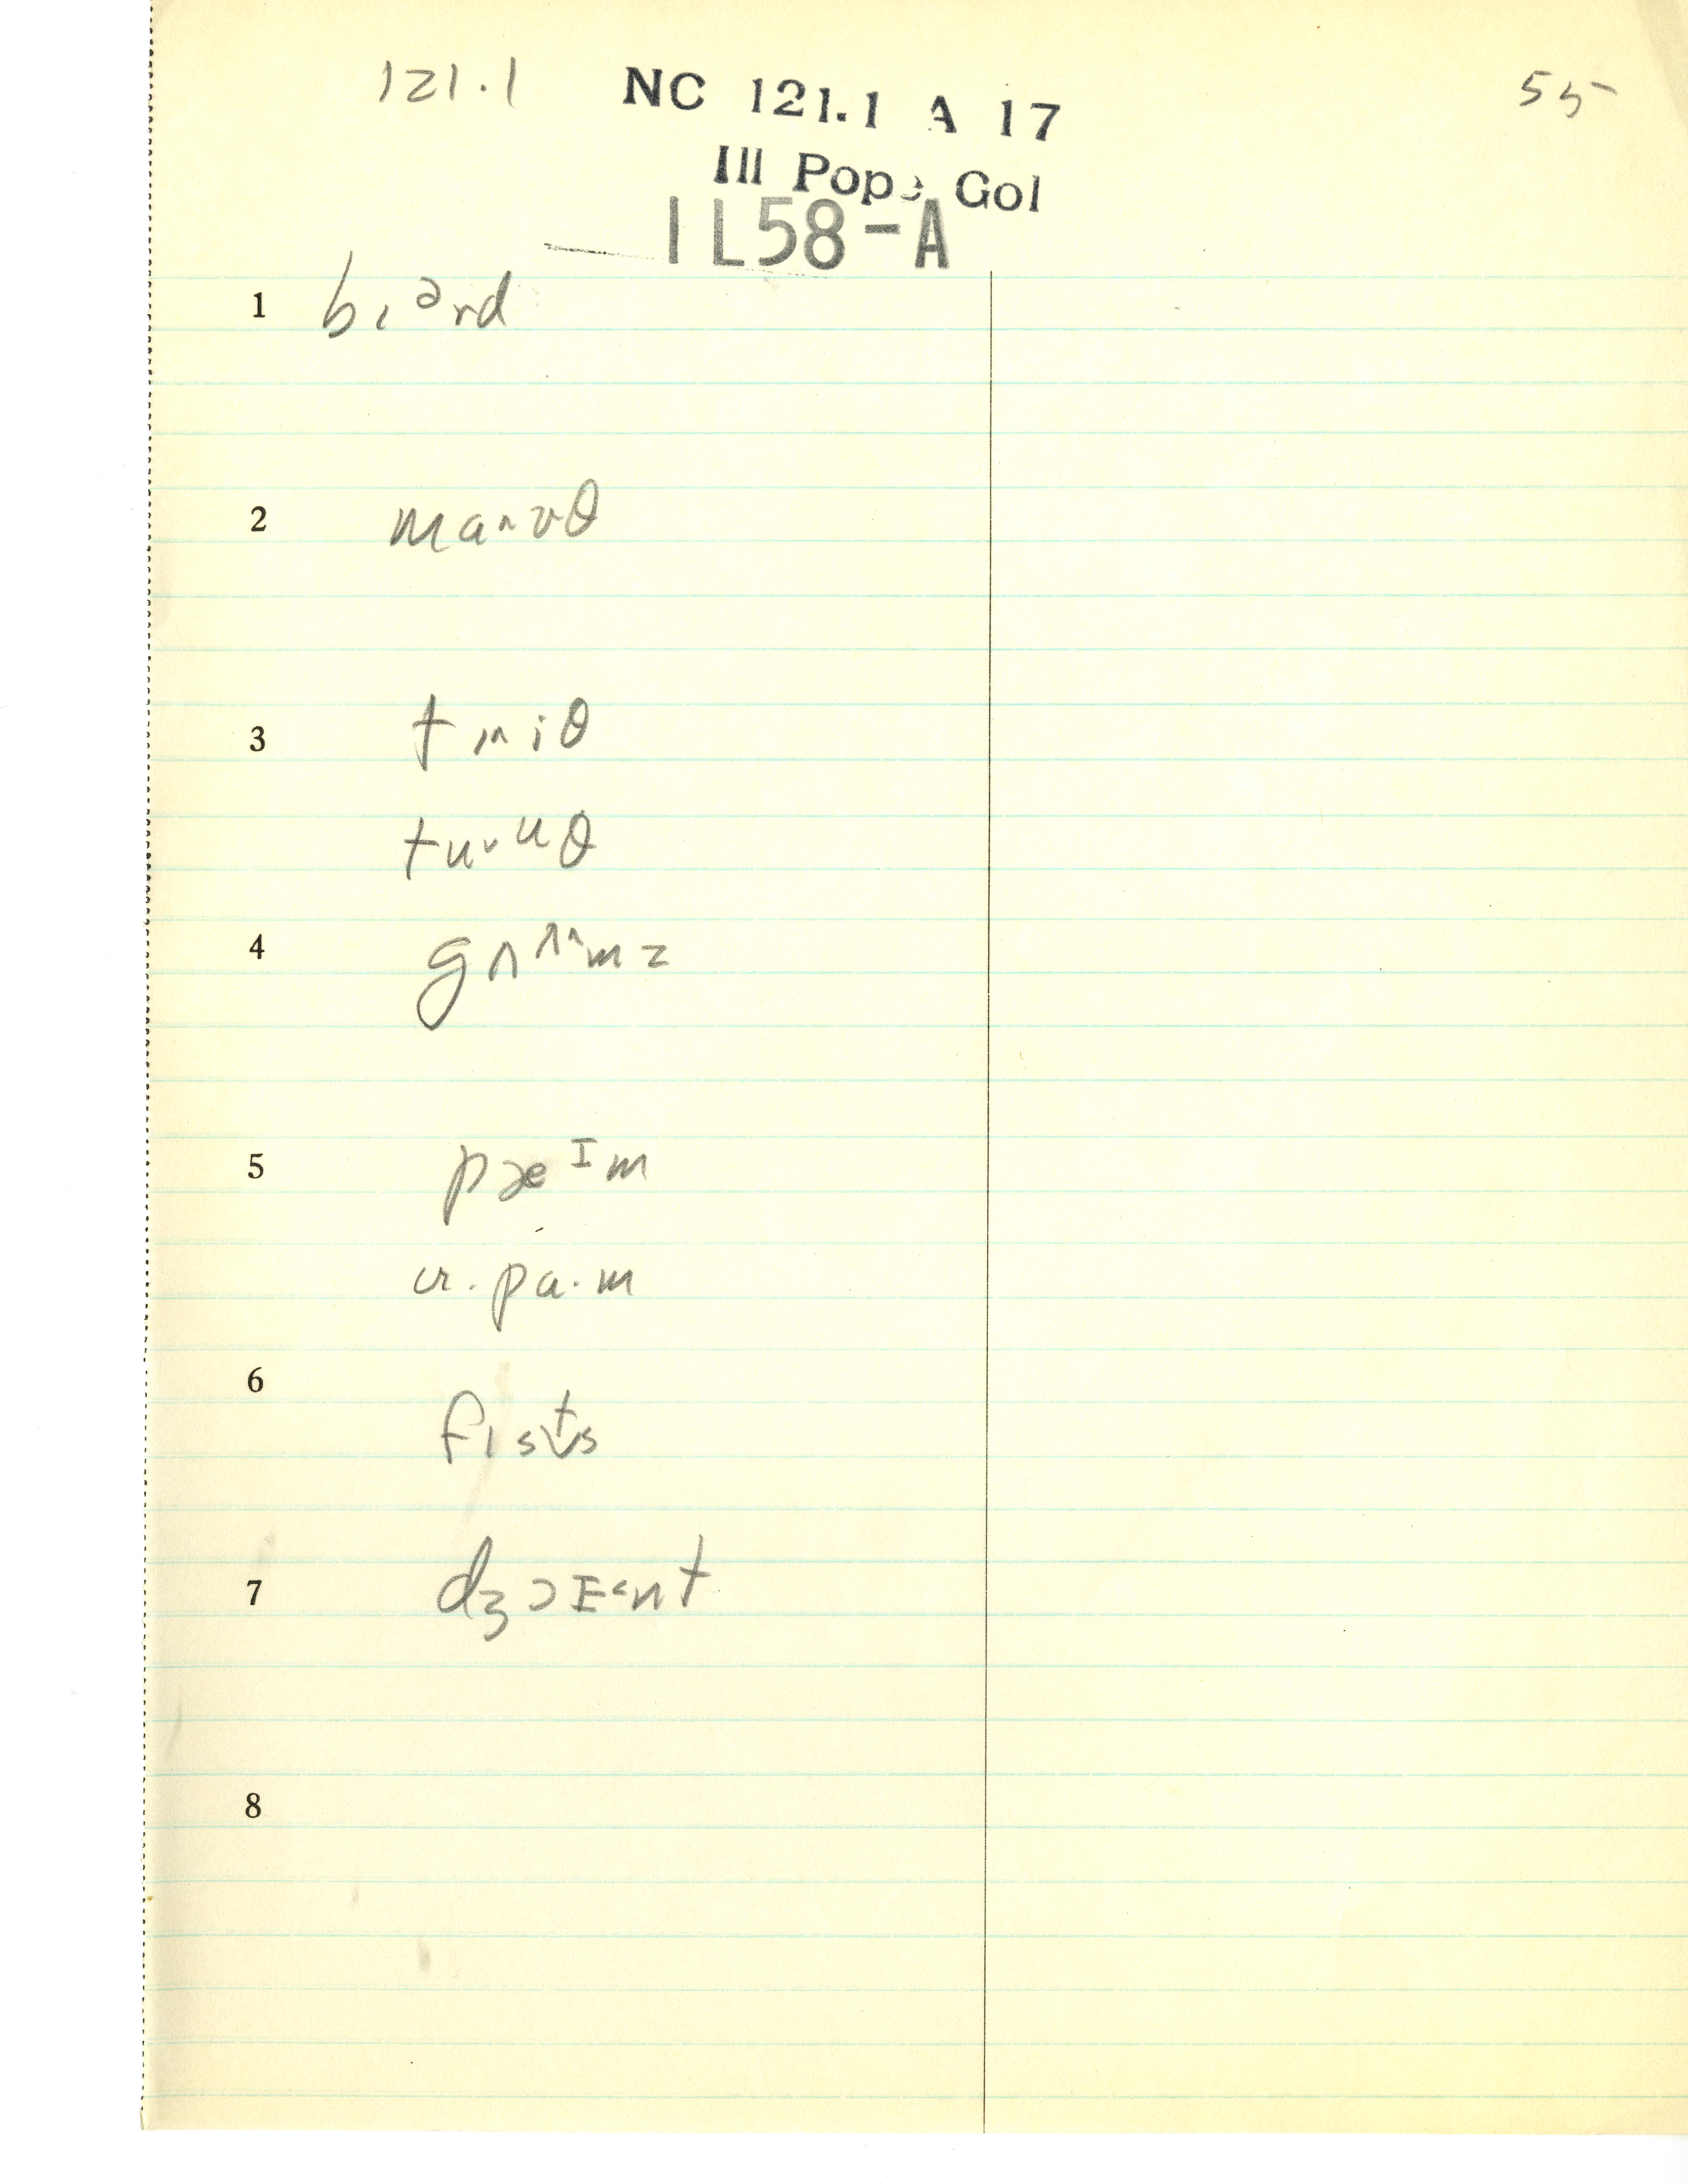 121.1 NC 121.1 A 17 55
Ill Pope Gol
IL58-A
1 bɪᵊrd
2 ma˄ʊθ
3 t iθ
tu˅ᵘθ
4 gʌᶺ˄mz
5 pæᴵm
ɑ·pa·m
6 fɪsts
7 dʒɔɪ˂nt
8